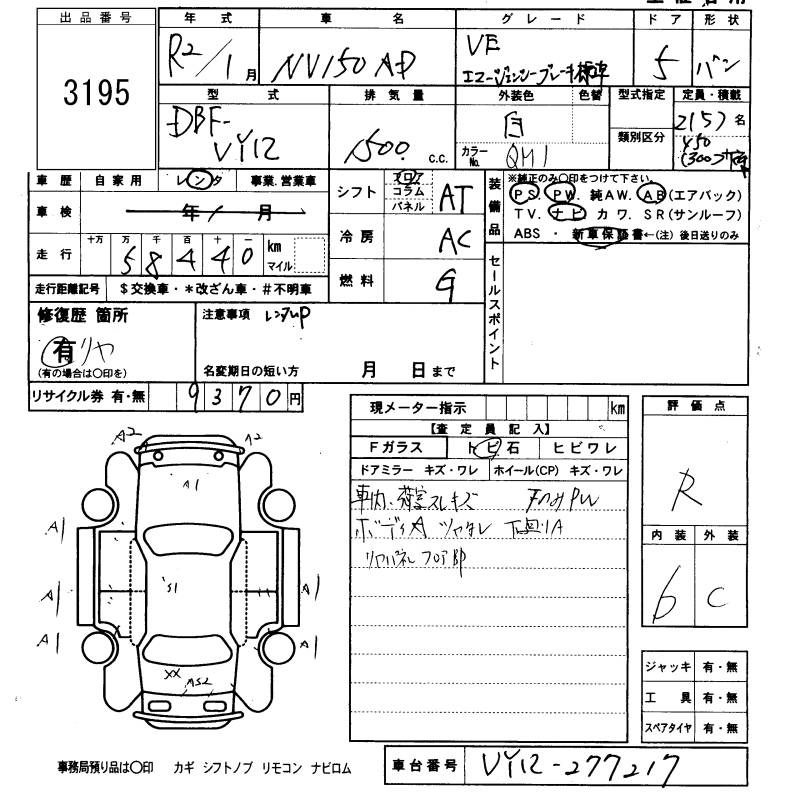 出品番号
3195
年式
R2/1月
車名
NV150 AD
グレード
VE
エマージェンシーブレーキ標準
ドア
5
形状
バン
型式
DBF-
VY12
排気量
1500 c.c.
外装色
白
色替
カラーNo.
QM1
型式指定
類別区分
定員・積載
2(5)名
450
(300)
車歴 自家用 レンタ 事業.営業車
車検 年 月
走行 十万 万 千 百 十 一
58440 km
マイル
走行距離記号 $交換車・*改ざん車・#不明車
シフト フロア コラム パネル AT
冷房 AC
燃料 G
装備品
※純正のみ〇印をつけて下さい。
PS. PW. 純AW. AB(エアバック)
TV. ナビ カワ. SR(サンルーフ)
ABS ・ 新車保証書←(注) 後日送りのみ
セールスポイント
修復歴 箇所
有 リヤ
(有の場合は〇印を)
注意事項 レンタUP
名変期日の短い方 月 日まで
リサイクル券 有・無 9370円
現メーター指示 km
【査定員記入】
Fガラス トビ石 ヒビワレ
ドアミラー キズ・ワレ ホイール(CP) キズ・ワレ
車内、荷室スレキズ
ボディA ツヤクレ 下回りA
リヤパネル フロア部
評価点
R
内装 外装
6 C
ジャッキ 有・無
工具 有・無
スペアタイヤ 有・無
A2 A2
A1
A1 A1
S1
A1 A1
A1 A1
XX
AS2
事務局預り品は〇印 カギ シフトノブ リモコン ナビロム
車台番号 VY12-277217